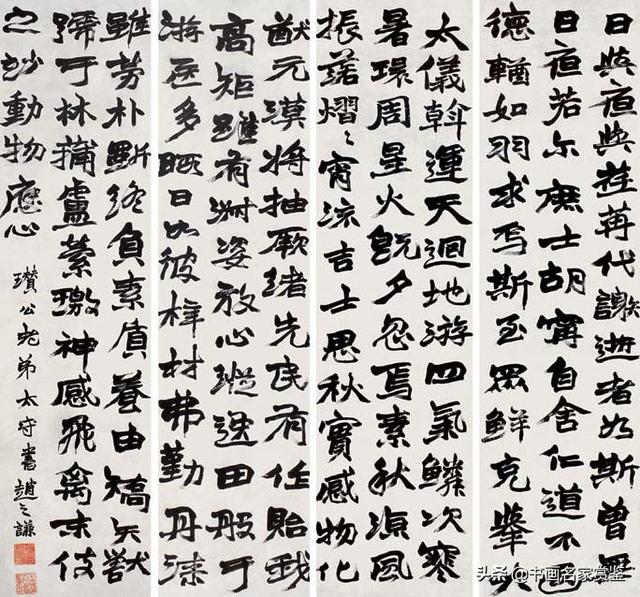 日與夜與荏苒代謝逝者如斯曾無
日夜嗟尔庶士胡甯自舍仁道不遐
德輶如羽求焉斯至眾鮮克舉大
太儀斡運天迴地游四氣鱗次寒
暑環周星火既夕忽焉素秋涼風
振落熠〻宵流吉士思秋實感物化
猷元漠將抽厥緒先民有作貽我
高矩雖有淑姿放心縱逸田般于
游居多暇日如彼梓材弗勤丹漆
雖勞朴斲終負素質養由矯矢獸
號于林蒲盧縈繳神感飛禽末伎
之妙動物應心
瓚公老弟太守書趙之謙
头条 @书画名家赏鉴